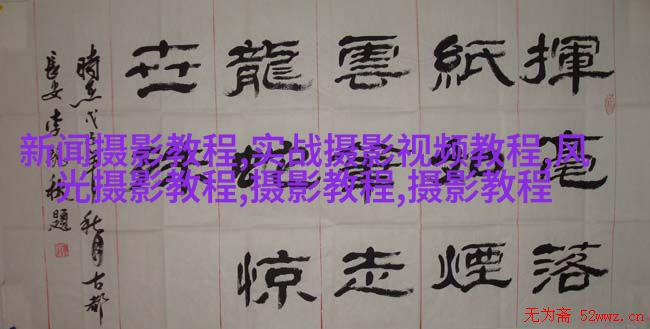 揮毫落
紙煙
雲走
龍蛇惊
世
秋月古都
長安李題
新闻摄影教程,实战摄影视频教程,风
光摄影教程,摄影教程,摄影教程
无为斋 52wwz.cn